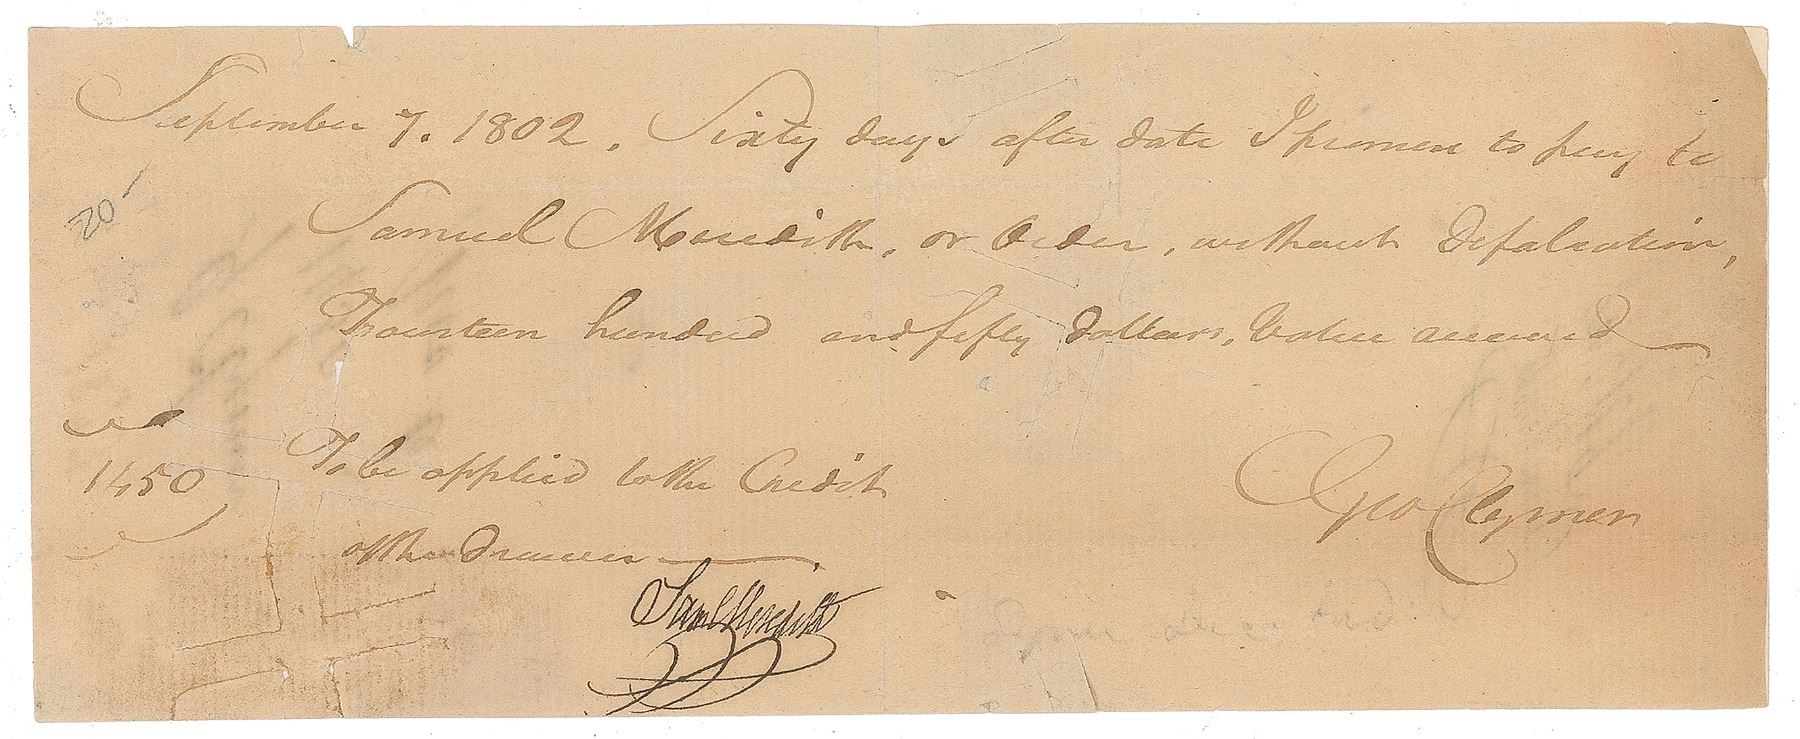 September 7. 1802. Sixty days after date I promise to pay to
Samuel Meredith, or Order, without Defalcation,
Fourteen hundred and fifty dollars, Value received
1450
To be applied to the Credit
of the Drawer
Geo Clymer
Saml Meredith
20